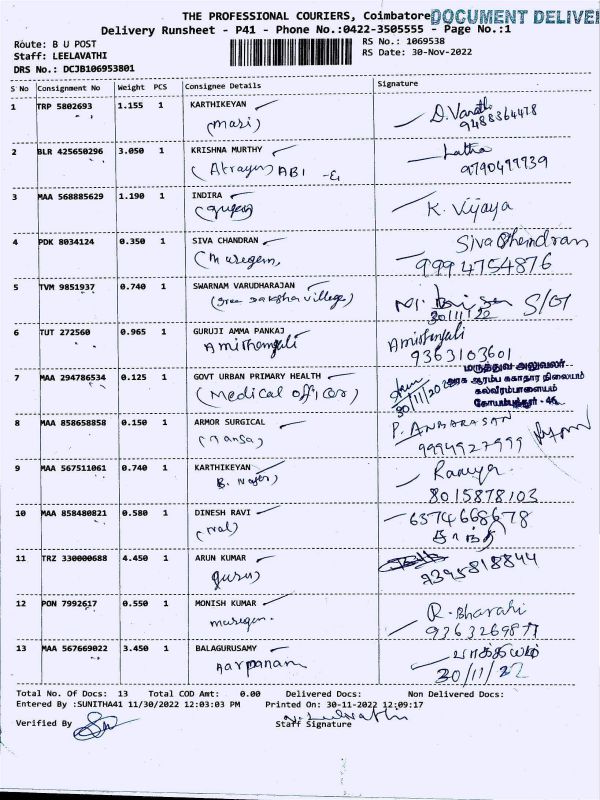 THE PROFESSIONAL COURIERS, Coimbatore
DOCUMENT DELIVE
Delivery Runsheet - P41 - Phone No.:0422-3505555 - Page No.:1
Route: B U POST
RS No.: 1069538
Staff: LEELAVATHI
RS Date: 30-Nov-2022
DRS No.: DCJB106953801
S No Consignment No Weight PCS Consignee Details Signature
1 TRP 5802693 1.155 1 KARTHIKEYAN
(mari)
D. Vanathi
9488364478
2 BLR 425650296 3.050 1 KRISHNA MURTHY
(Atrayee) ABI -E
Latha
9790499939
3 MAA 568885629 1.190 1 INDIRA
K. Vijaya
4 PDK 8034124 0.350 1 SIVA CHANDRAN
(muregem)
Siva Chandran
9994754876
5 TVM 9851937 0.740 1 SWARNAM VARUDHARAJAN
(Sree Daksha village)
30/11/22 S/G1
6 TUT 272560 0.965 1 GURUJI AMMA PANKAJ
Amirthengali
9363103601
7 MAA 294786534 0.125 1 GOVT URBAN PRIMARY HEALTH
(Medical officer)
30/11/2022
மருத்துவ அலுவலர்
அரசு ஆரம்ப சுகாதார நிலையம்
கல்வீரம்பாளையம்
கோயம்புத்தூர் - 46
8 MAA 858658858 0.150 1 ARMOR SURGICAL
(Mansa)
P. ANBARASAN
9994927999
9 MAA 567511061 0.740 1 KARTHIKEYAN
B. Nager)
Ramya
8015878103
10 MAA 858480821 0.580 1 DINESH RAVI
(val)
6374668678
11 TRZ 330000688 4.450 1 ARUN KUMAR
guru)
9395818844
12 PON 7992617 0.550 1 MONISH KUMAR
muregen
R. Bharathi
9363269877
13 MAA 567669022 3.450 1 BALAGURUSAMY
Aarpanam
30/11/22
Total No. Of Docs: 13 Total COD Amt: 0.00 Delivered Docs: Non Delivered Docs:
Entered By :SUNITHA41 11/30/2022 12:03:03 PM Printed On: 30-11-2022 12:09:17
Verified By
Staff Signature